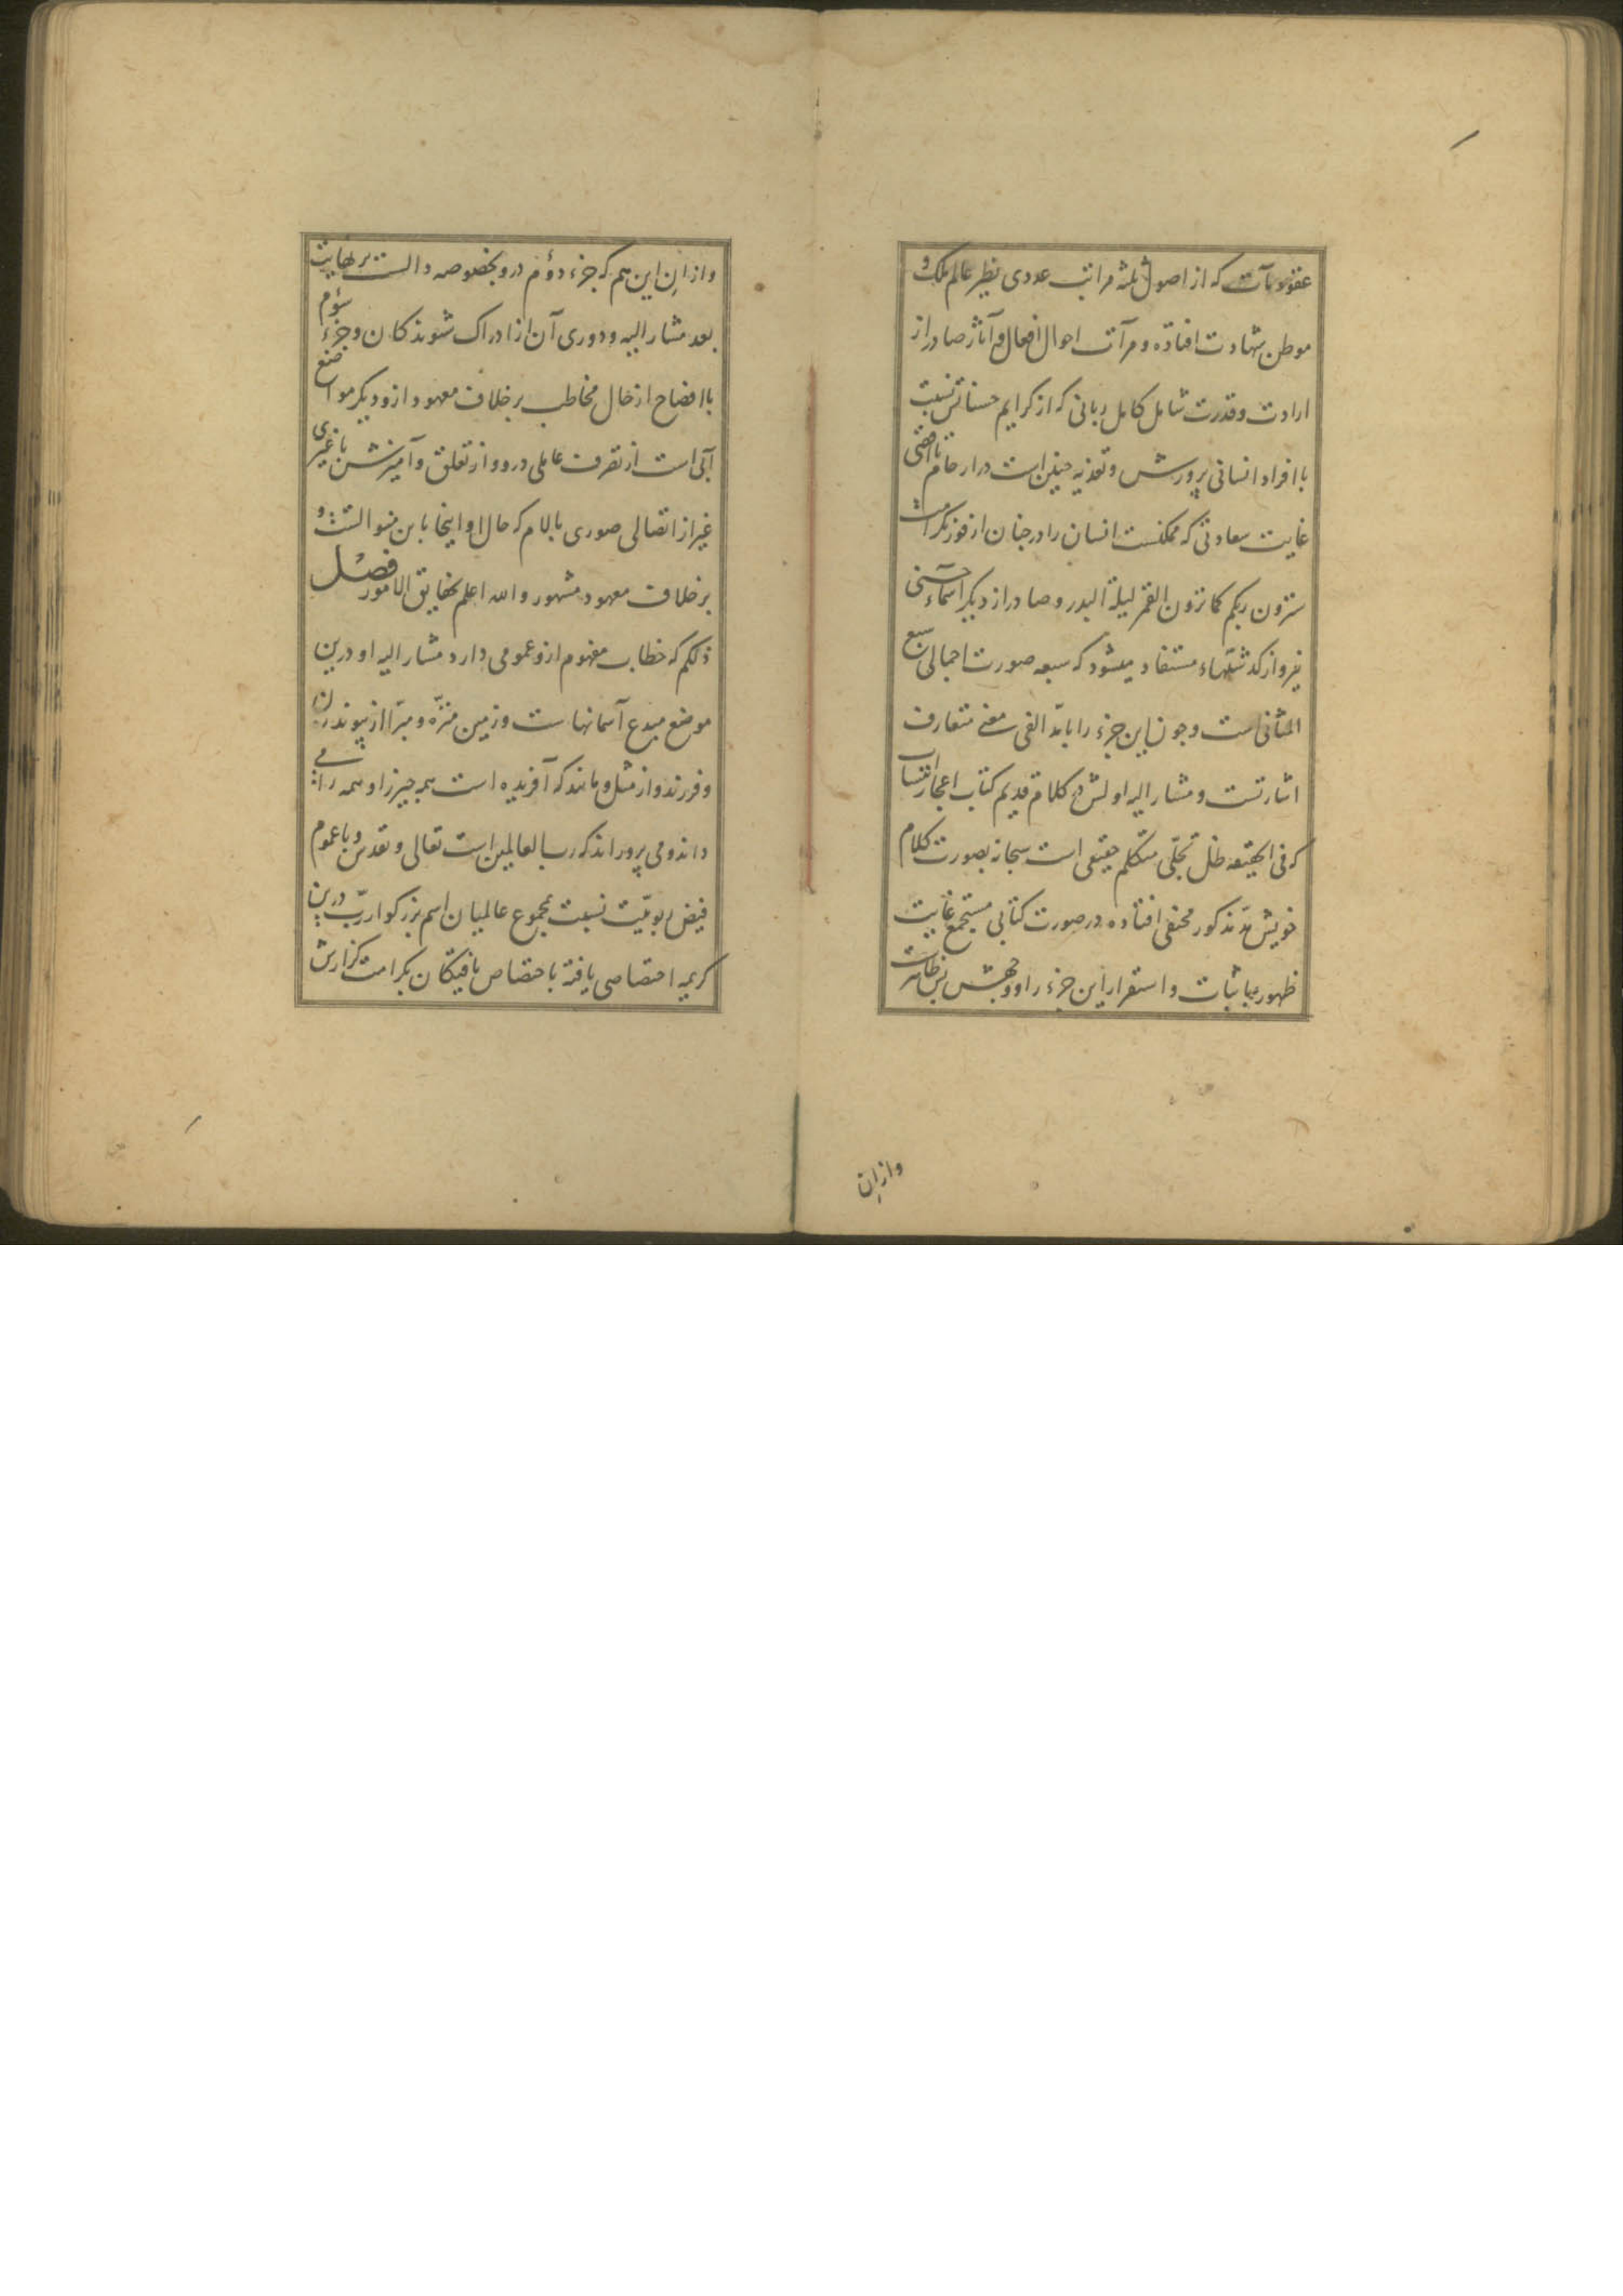 عقود مآت که از اصول ثلثه مراتب عددی نظیر عالم ملک و
موطن شهادت افتاده و مرآت احوال افعال و آثار صادر از
ارادت و قدرت شامل کامل ربانی که از کرایم حسناتش نسبت
با افراد انسانی پرورش و تغذیه جنین است در ارحام تا اقصی
غایت سعادتی که ممکنست انسان را در جنان از فوز بکرامت
سترون ربکم کما ترون القمر لیلة البدر و صادر از دیگر اسماء حسنی
نیز و از گذشتها مستفاد میشود که سبعه صورت اجمالی سبع
المثانی است و چون این جزء را با مدّ الفی معنی متعارف
اشارتست و مشار الیه اولش در کلام قدیم کتاب اعجاز انتساب
که فی الحقیقه ظل تجلّی متکلم حقیقی است سبحانه بصورت کلام
خویش مدّ مذکور مختفی افتاده در صورت کتابی مستجمع غایت
ظهور با ثبات و استقرار این جزء را و وجهش بس ظاهرست
وازان
وازان این هم که جزء دوّم درو بخصوصه دالست بر نهایت
بعد مشار الیه و دوری آن از ادراک شنوندکان و جزء سوّم
با افضاح از حال مخاطب بر خلاف معهود ازو دیگر مواضع
آبی است از تصرف عاملی درو و از تعلق و آمیزشش با غیری
غیر از اتصالی صوری بالام که حال او اینجا باین منوالست و
بر خلاف معهود مشهور و الله اعلم بحقایق الامور فصل
ذلکم که خطاب مفهوم ازو عمومی دارد مشار الیه او درین
موضع مبدع آسمانهاست و زمین منزّه و مبرّا از پیوند زن
و فرزند و از مثل و مانند که آفریده است همه چیز را و همه را می
داند و می پروراند که رب العالمین است تعالی و تقدس و با عموم
فیض ربوبیّت نسبت بمجموع عالمیان اسم بزرکوار ربّ درین
کریمه اختصاصی یافته باختصاص یافتکان بکرامت گزارش